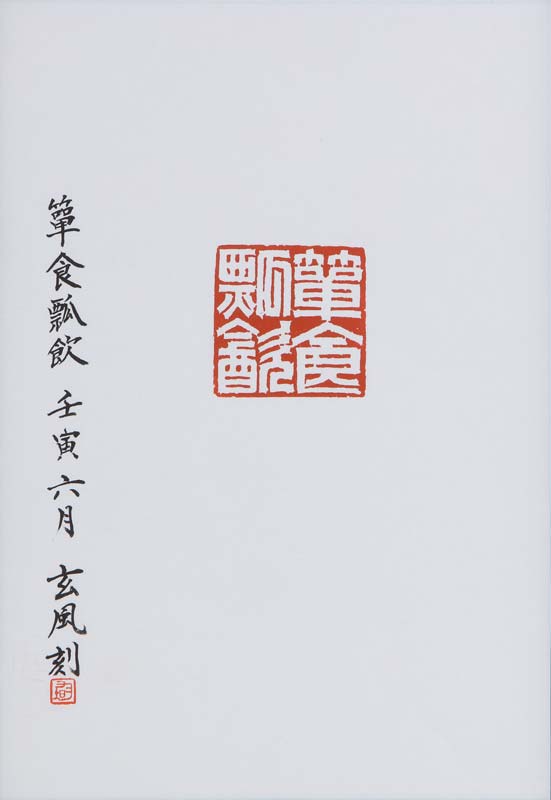 簞食
瓢飮
簞食瓢飲 壬寅六月 玄風刻